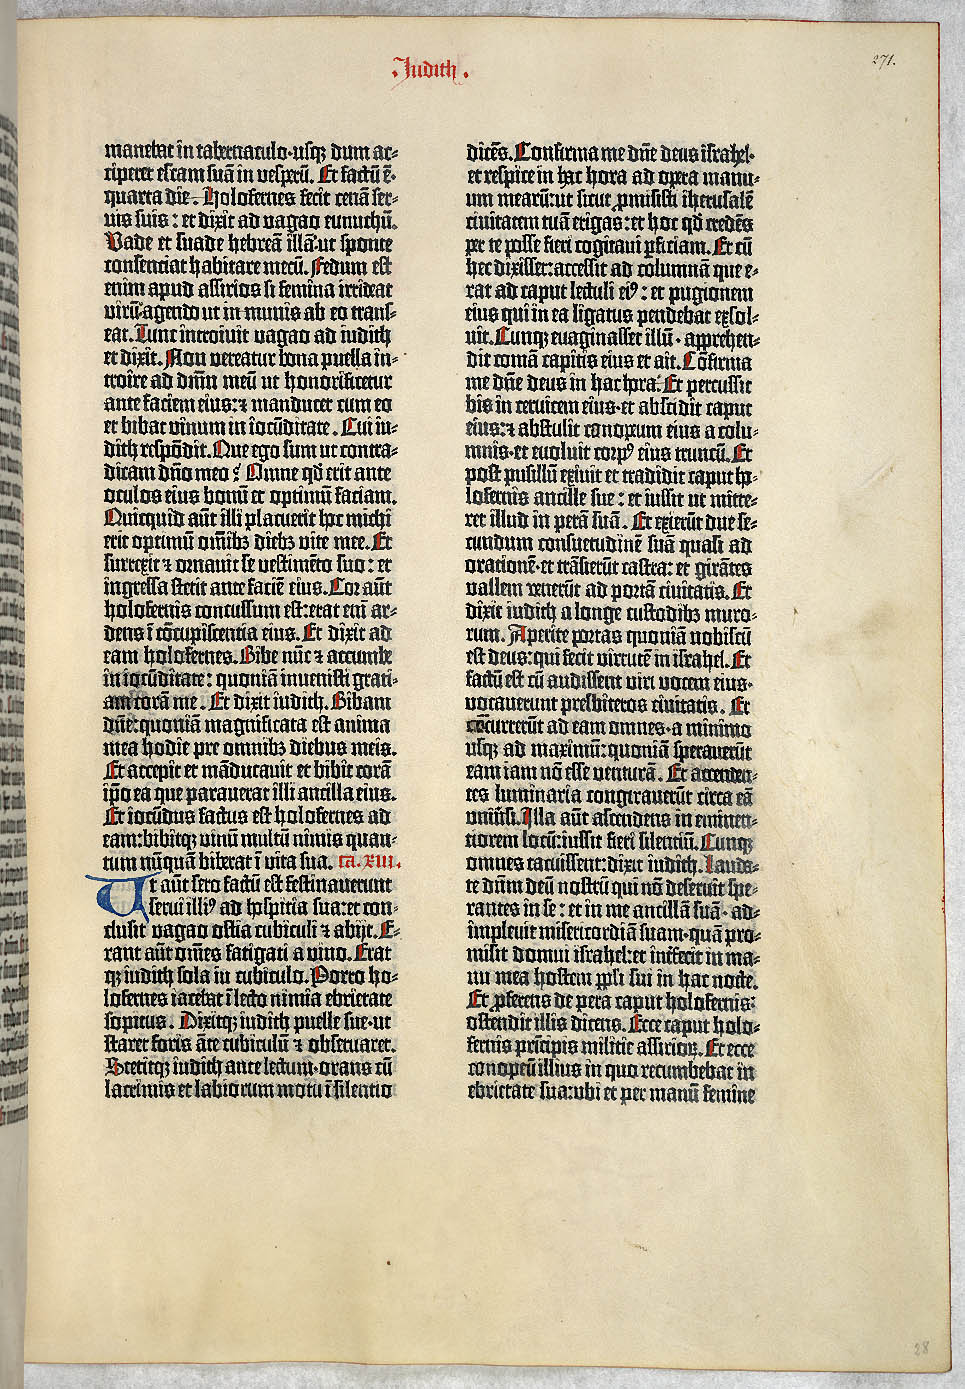 Judith.
271.
manebat in tabernaculo·usq̃ dum ac-
ciperet escam suā in vesperū. Et factū ē·
quarta die. Holofernes fecit cenā ser-
vis suis: et dixit ad vagao eunuchū.
Vade et suade hebreā illā·ut sponte
consenciat habitare mecū. Fedum est
enim apud assirios si femina irrideat
virū·agendo ut inmunis ab eo trans-
eat. Tunc introivit vagao ad iudith
et dixit. Non vereatur bona puella in-
troire ad dn̄m meū ut honorificetur
ante faciem eius: ⁊ manducet cum eo
et bibat vinum in iocūditate. Cui iu-
dith respōdit. Que ego sum ut contra-
dicam dn̄o meo? Omne qd̄ erit ante
oculos eius bonū et optimū faciam.
Quicquid aūt illi placuerit hoc michi
erit optimū om̄ibꝫ diebꝫ vite mee. Et
surrexit ⁊ ornavit se vestimēto suo: et
ingressa stetit ante faciē eius. Cor aūt
holofernis concussum est: erat eni᷑ ar-
dens ī cōcupiscentia eius. Et dixit ad
eam holofernes. Bibe nūc ⁊ accumbe
in iocūditate: quoniā invenisti grati-
am corā me. Et dixit iudith. Bibam
dn̄e: quoniā magnificata est anima
mea hodie pre omnibꝫ diebus meis.
Et accepit et māducavit et bibit corā
ip̄o ea que paraverat illi ancilla eius.
Et iocūdus factus est holofernes ad
eam: bibitqꝫ vinū multū nimis quan-
tum nūquā biberat ī vita sua. ca. XIII.
Ut aūt sero factū est festinaverunt
servi illiꝰ ad hospitia sua: et con-
clusit vagao ostia cubiculi ⁊ abijt. E-
rant aūt om̄es fatigati a vino. Erat
qꝫ iudith sola in cubiculo. Porro ho-
lofernes iacebat ī lecto nimia ebrietate
sopitus. Dixitqꝫ iudith puelle sue·ut
staret foris āte cubiculū ⁊ observaret.
Stetitqꝫ iudith ante lectum·orans cū
lacrimis et labiorum motu ī silentio
dicēs. Confirma me dn̄e deus israhel·
et respice in hac hora ad opera manu-
um mearū: ut sicut ꝓmisisti iherusalē
civitatem tuā erigas: et hoc qd̄ credēs
per te posse fieri cogitavi ꝑficiam. Et cū
hec dixisset: accessit ad columnā que e-
rat ad caput lectuli eiꝰ: et pugionem
eius qui in ea ligatus pendebat exsol-
vit. Cunqꝫ evaginasset illū·apprehen-
dit comā capitis eius et ait. Cōfirma
me dn̄e deus in hac hora. Et percussit
bis in cervicem eius·et abscidit caput
eius: ⁊ abstulit conopeum eius a colu-
mnis·et evolvit corpꝰ eius truncū. Et
post pusillū exivit et tradidit caput ho-
lofernis ancille sue: et iussit ut mitte-
ret illud in perā suā. Et exierūt due se-
cundum consuetudinē suā quasi ad
orationē·et trāsierūt castra: et girātes
vallem venerūt ad portā civitatis. Et
dixit iudith a longe custodibꝫ muro-
rum. Aperite portas quoniā nobiscū
est deus: qui fecit virtutē in israhel. Et
factū est cū audissent viri vocem eius·
vocaverunt presbiteros civitatis. Et
cōcurrerūt ad eam omnes·a minimo
usqꝫ ad maximū: quoniā speraverūt
eam iam nō esse venturā. Et accenden-
tes luminaria congiraverūt circa eā
universi. Illa aūt ascendens in eminen-
tiorem locū: iussit fieri silentiū. Cunqꝫ
omnes tacuissent: dixit iudith. Lauda-
te dn̄m deū nostrū qui nō deseruit spe-
rantes in se: et in me ancillā suā·ad-
implevit misericordiā suam·quā pro-
misit domui israhel: et int̄fecit in ma-
nu mea hostem ꝓpli sui in hac nocte.
Et ꝓferens de pera caput holofernis:
ostendit illis dicens. Ecce caput holo-
fernis prīcipis militie assirioꝝ. Et ecce
conopeū illius in quo recumbebat in
ebrietate sua: ubi et per manū femine
28